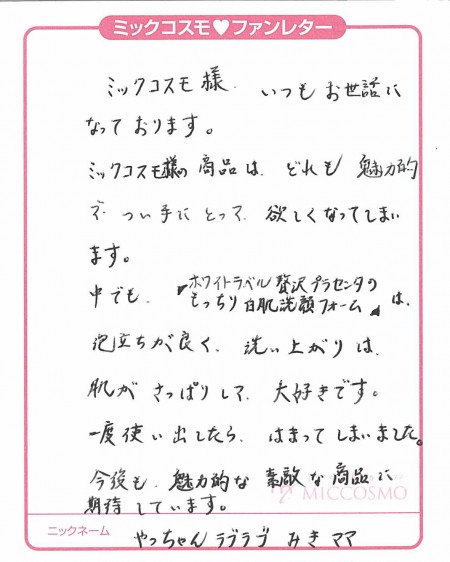 ミックコスモ♥ファンレター
ミックコスモ様、いつもお世話に
なっております。
ミックコスモ様の商品は、どれも魅力的
で、つい手にとって、欲しくなってしまい
ます。
中でも、『ホワイトラベル贅沢プラセンタの
もっちり白肌洗顔フォーム』は、
泡立ちが良く、洗い上がりは、
肌がさっぱりして、大好きです。
一度使い出したら、はまってしまいました。
今後も、魅力的な素敵な商品に
MICCOSMO
期待しています。
ニックネーム
やっちゃんラブラブみきママ